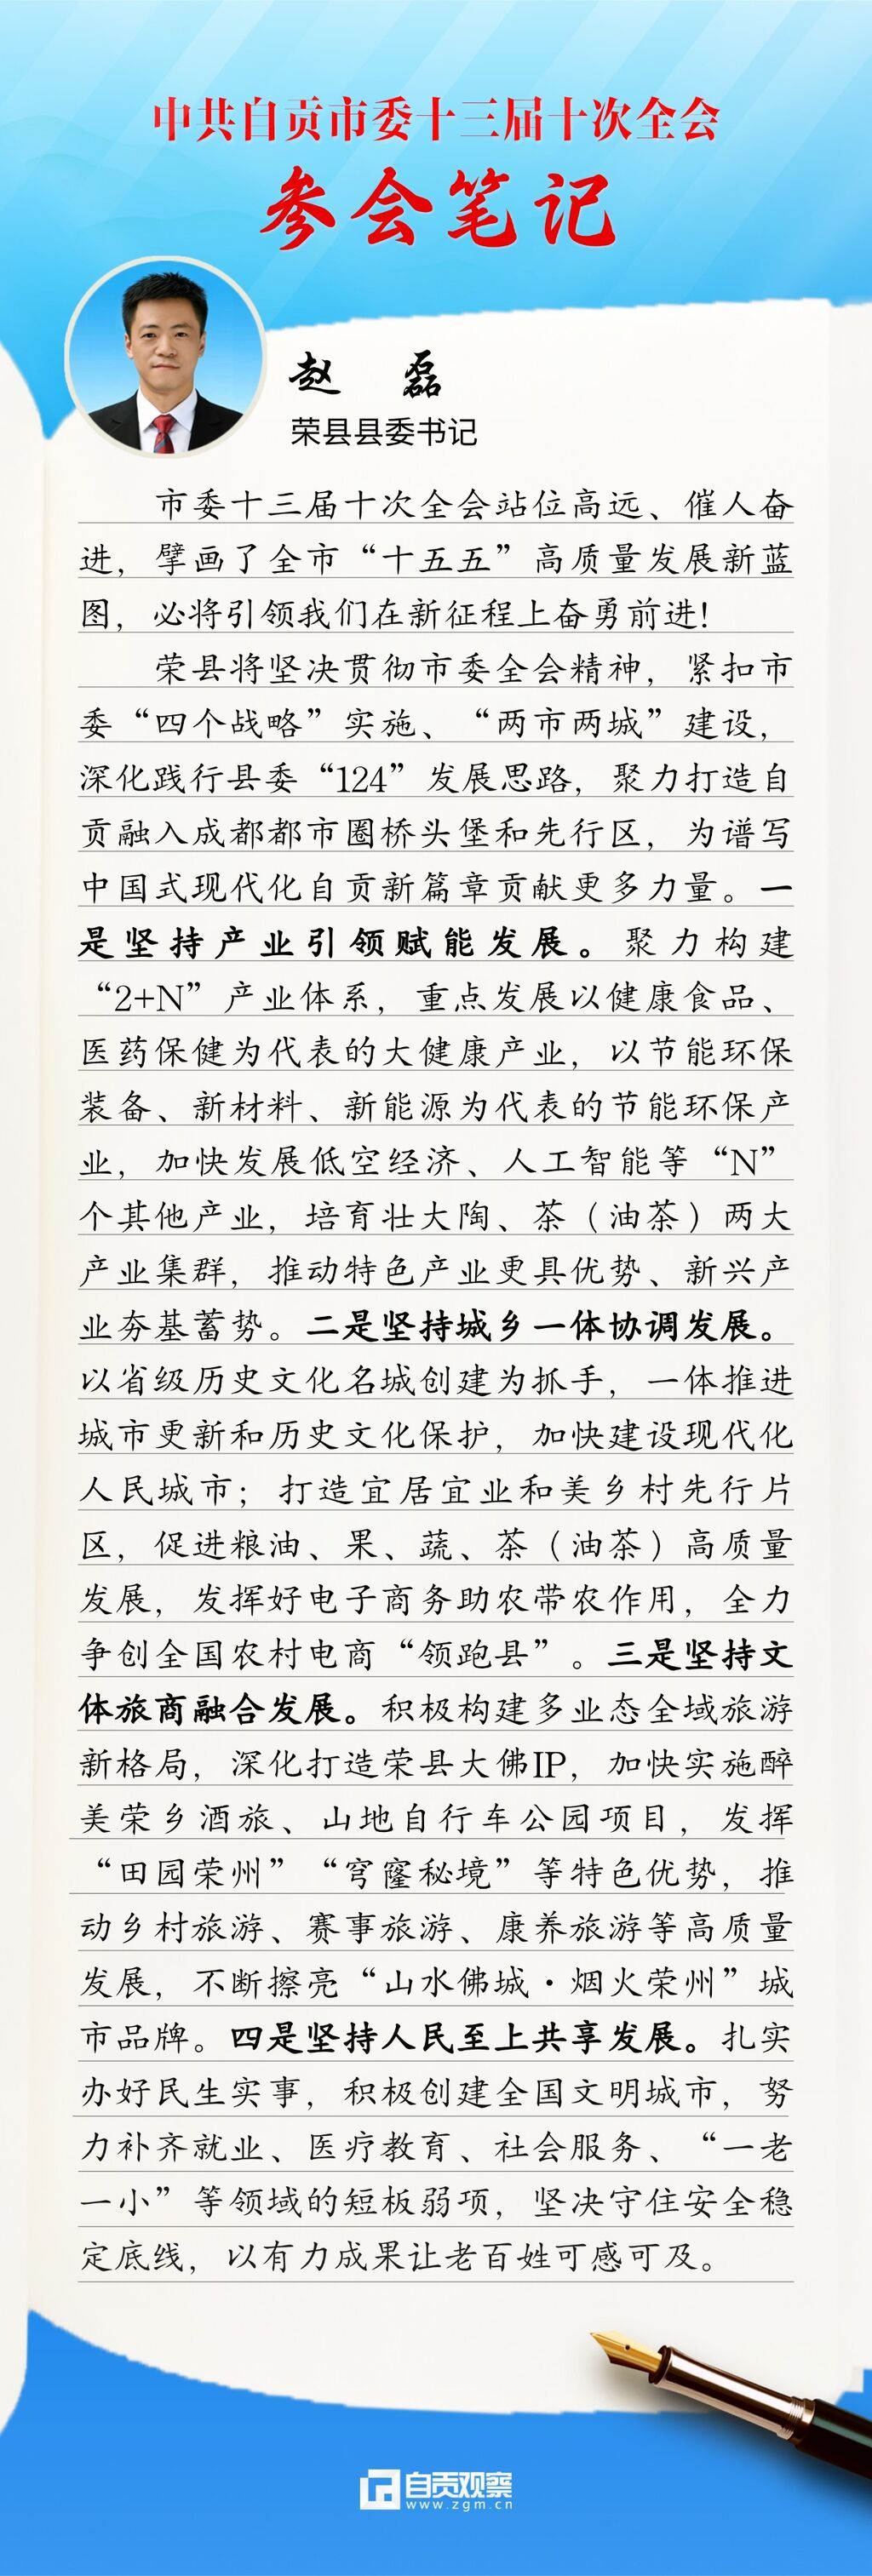 中共自贡市委十三届十次全会
参会笔记
赵 磊
荣县县委书记
市委十三届十次全会站位高远、催人奋
进，擘画了全市“十五五”高质量发展新蓝
图，必将引领我们在新征程上奋勇前进!
荣县将坚决贯彻市委全会精神，紧扣市
委“四个战略”实施、“两市两城”建设，
深化践行县委“124”发展思路，聚力打造自
贡融入成都都市圈桥头堡和先行区，为谱写
中国式现代化自贡新篇章贡献更多力量。一
是坚持产业引领赋能发展。聚力构建
“2+N”产业体系，重点发展以健康食品、
医药保健为代表的大健康产业，以节能环保
装备、新材料、新能源为代表的节能环保产
业，加快发展低空经济、人工智能等“N”
个其他产业，培育壮大陶、茶（油茶）两大
产业集群，推动特色产业更具优势、新兴产
业夯基蓄势。二是坚持城乡一体协调发展。
以省级历史文化名城创建为抓手，一体推进
城市更新和历史文化保护，加快建设现代化
人民城市；打造宜居宜业和美乡村先行片
区，促进粮油、果、蔬、茶（油茶）高质量
发展，发挥好电子商务助农带农作用，全力
争创全国农村电商“领跑县”。三是坚持文
体旅商融合发展。积极构建多业态全域旅游
新格局，深化打造荣县大佛IP，加快实施醉
美荣乡酒旅、山地自行车公园项目，发挥
“田园荣州”“穹窿秘境”等特色优势，推
动乡村旅游、赛事旅游、康养旅游等高质量
发展，不断擦亮“山水佛城·烟火荣州”城
市品牌。四是坚持人民至上共享发展。扎实
办好民生实事，积极创建全国文明城市，努
力补齐就业、医疗教育、社会服务、“一老
一小”等领域的短板弱项，坚决守住安全稳
定底线，以有力成果让老百姓可感可及。
自贡观察
www.zgm.cn